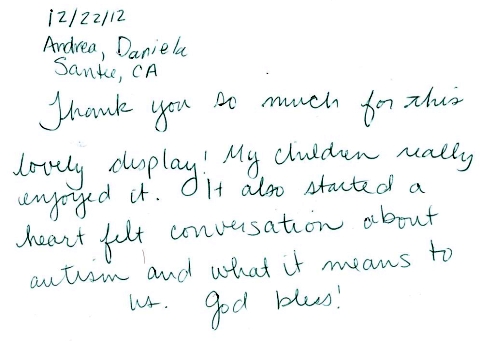 12/22/12
Andrea, Daniela
Santee, CA
Thank you so much for this
lovely display! My children really
enjoyed it. It also started a
heart felt conversation about
autism and what it means to
us. God bless!